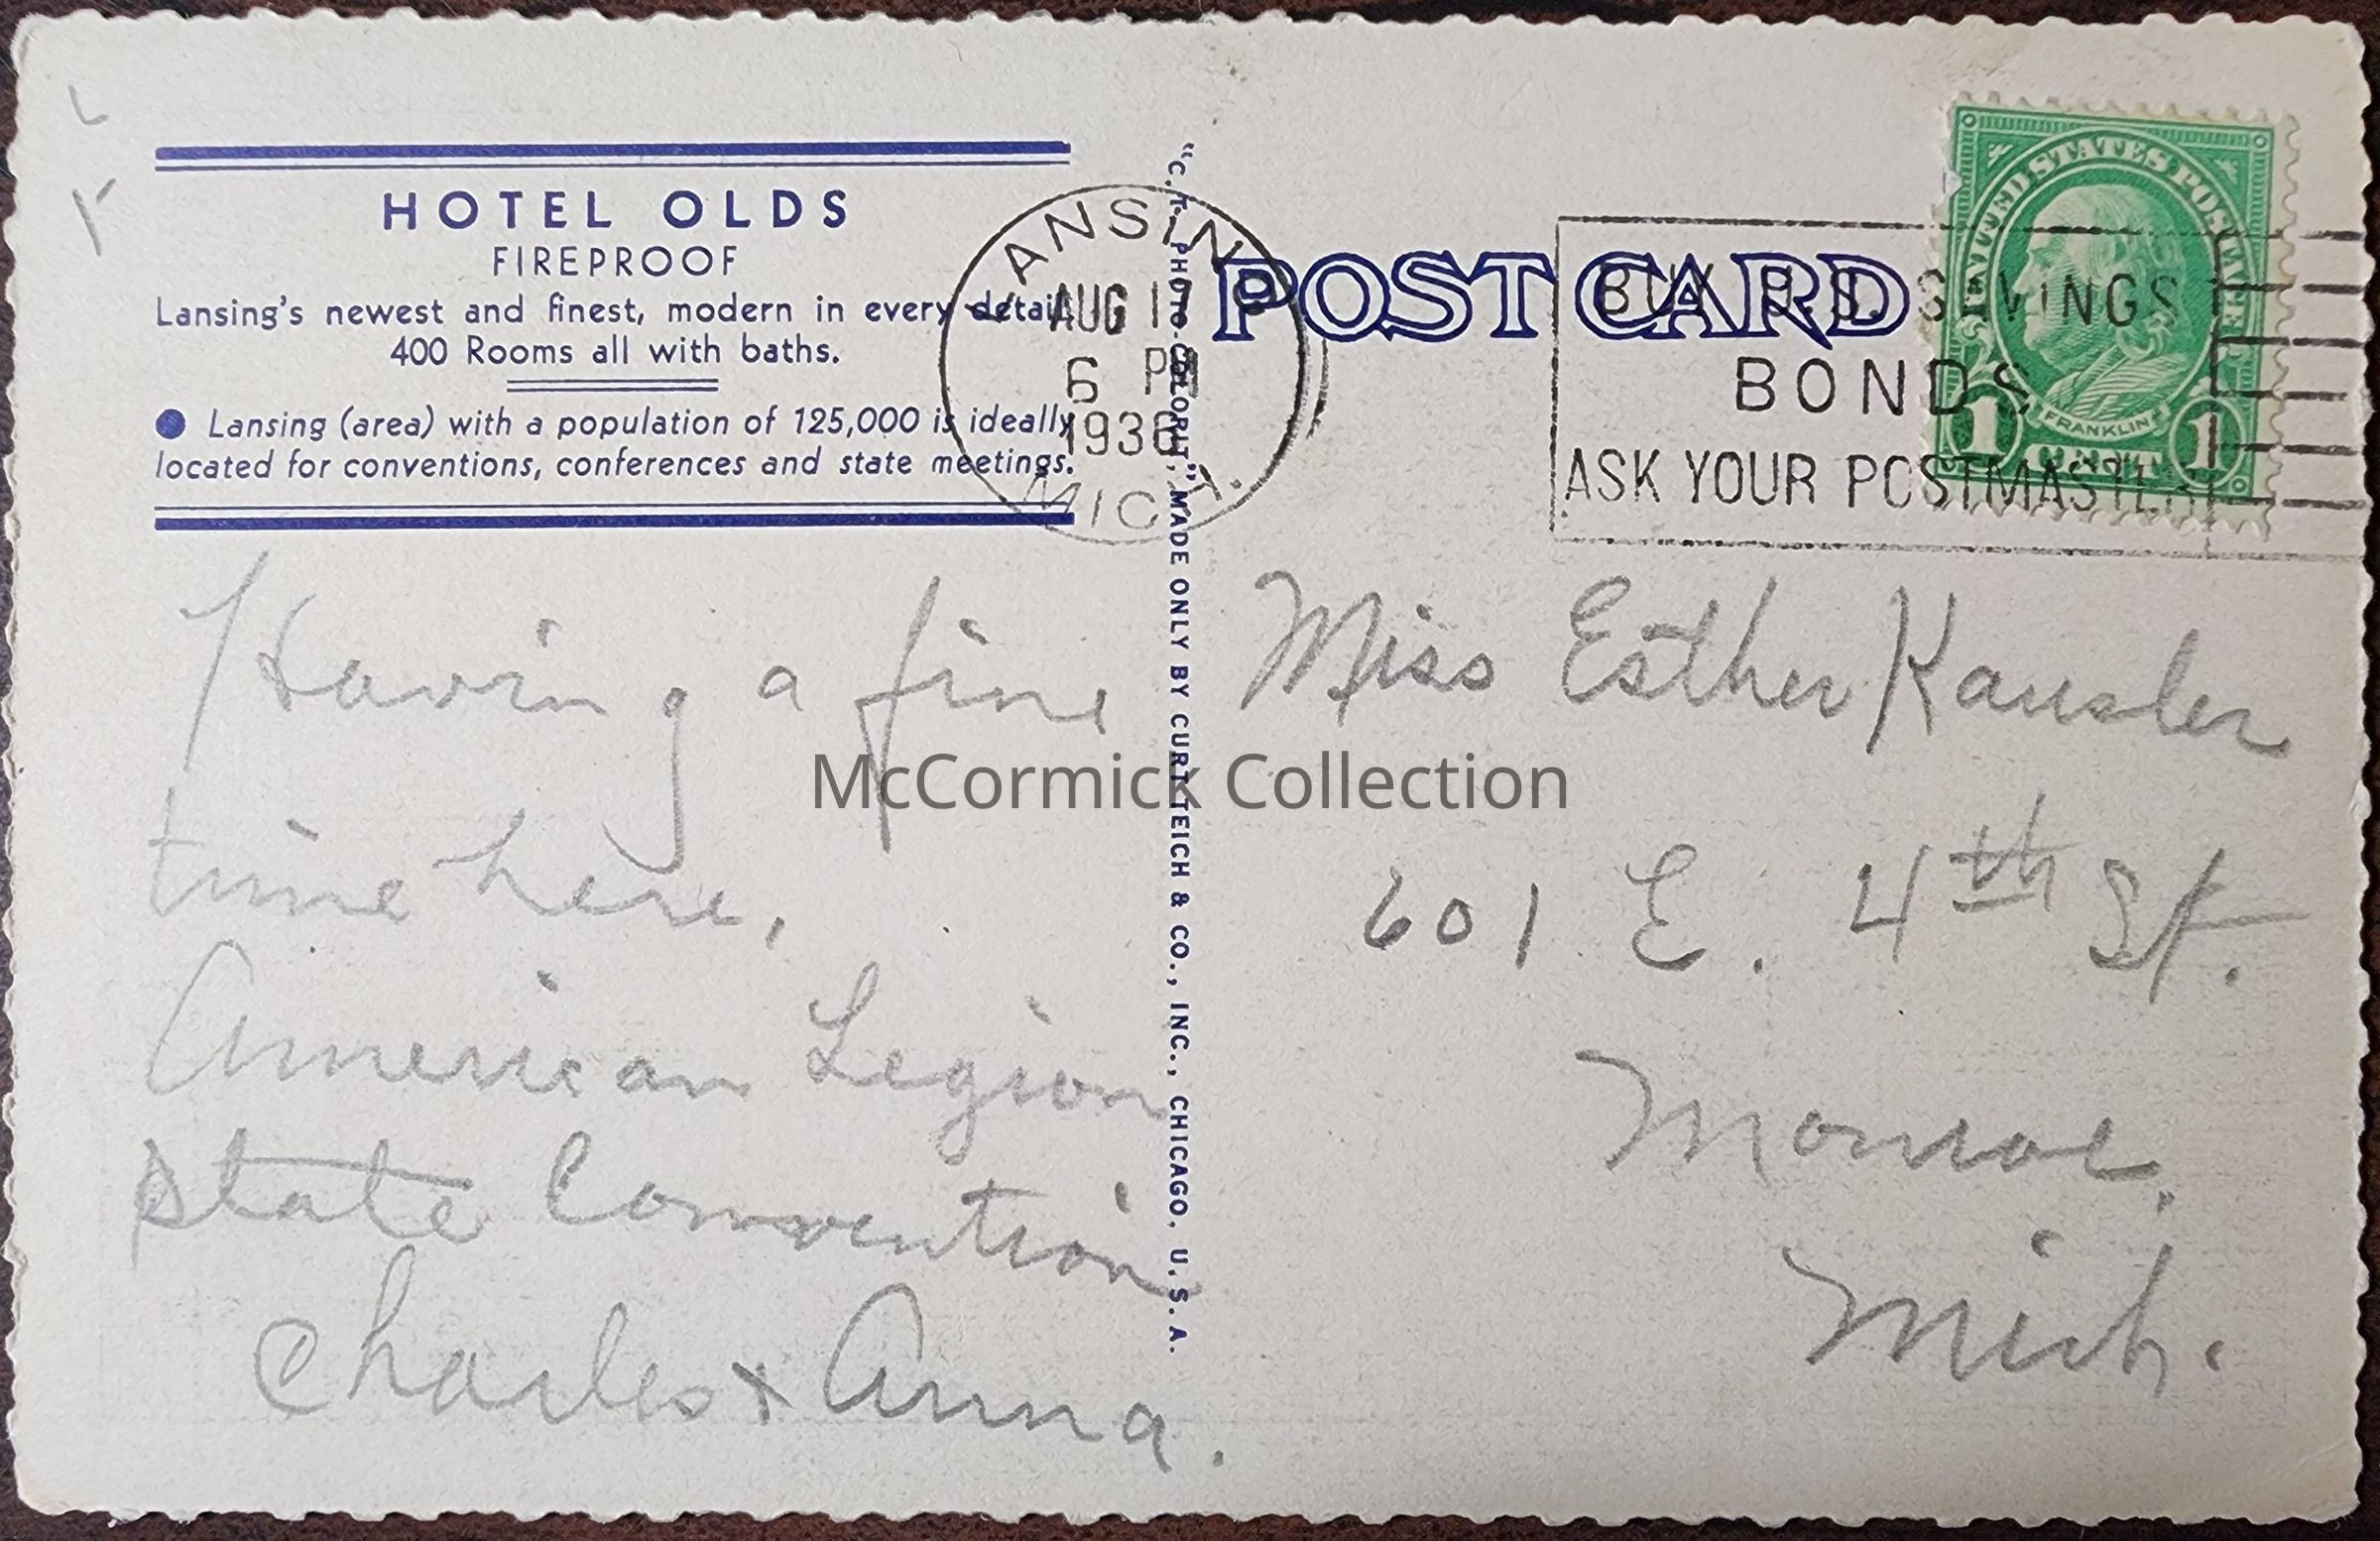 HOTEL OLDS
FIREPROOF
Lansing's newest and finest, modern in every detail.
400 Rooms all with baths.
● Lansing (area) with a population of 125,000 is ideally
located for conventions, conferences and state meetings.
Having a fine
time here,
American Legion
State Convention
Charles & Anna.
"C.T. PHOTO-COLORIT" MADE ONLY BY CURT TEICH & CO., INC., CHICAGO. U.S.A.
LANSING
AUG 17
6 PM
1936
MICH.
POST CARD
BUY U.S. SAVINGS
BONDS
ASK YOUR POSTMASTER
UNITED STATES POSTAGE
FRANKLIN
1 CENT 1
Miss Esther Kausler
601 E. 4th St.
Monroe,
Mich.
McCormick Collection